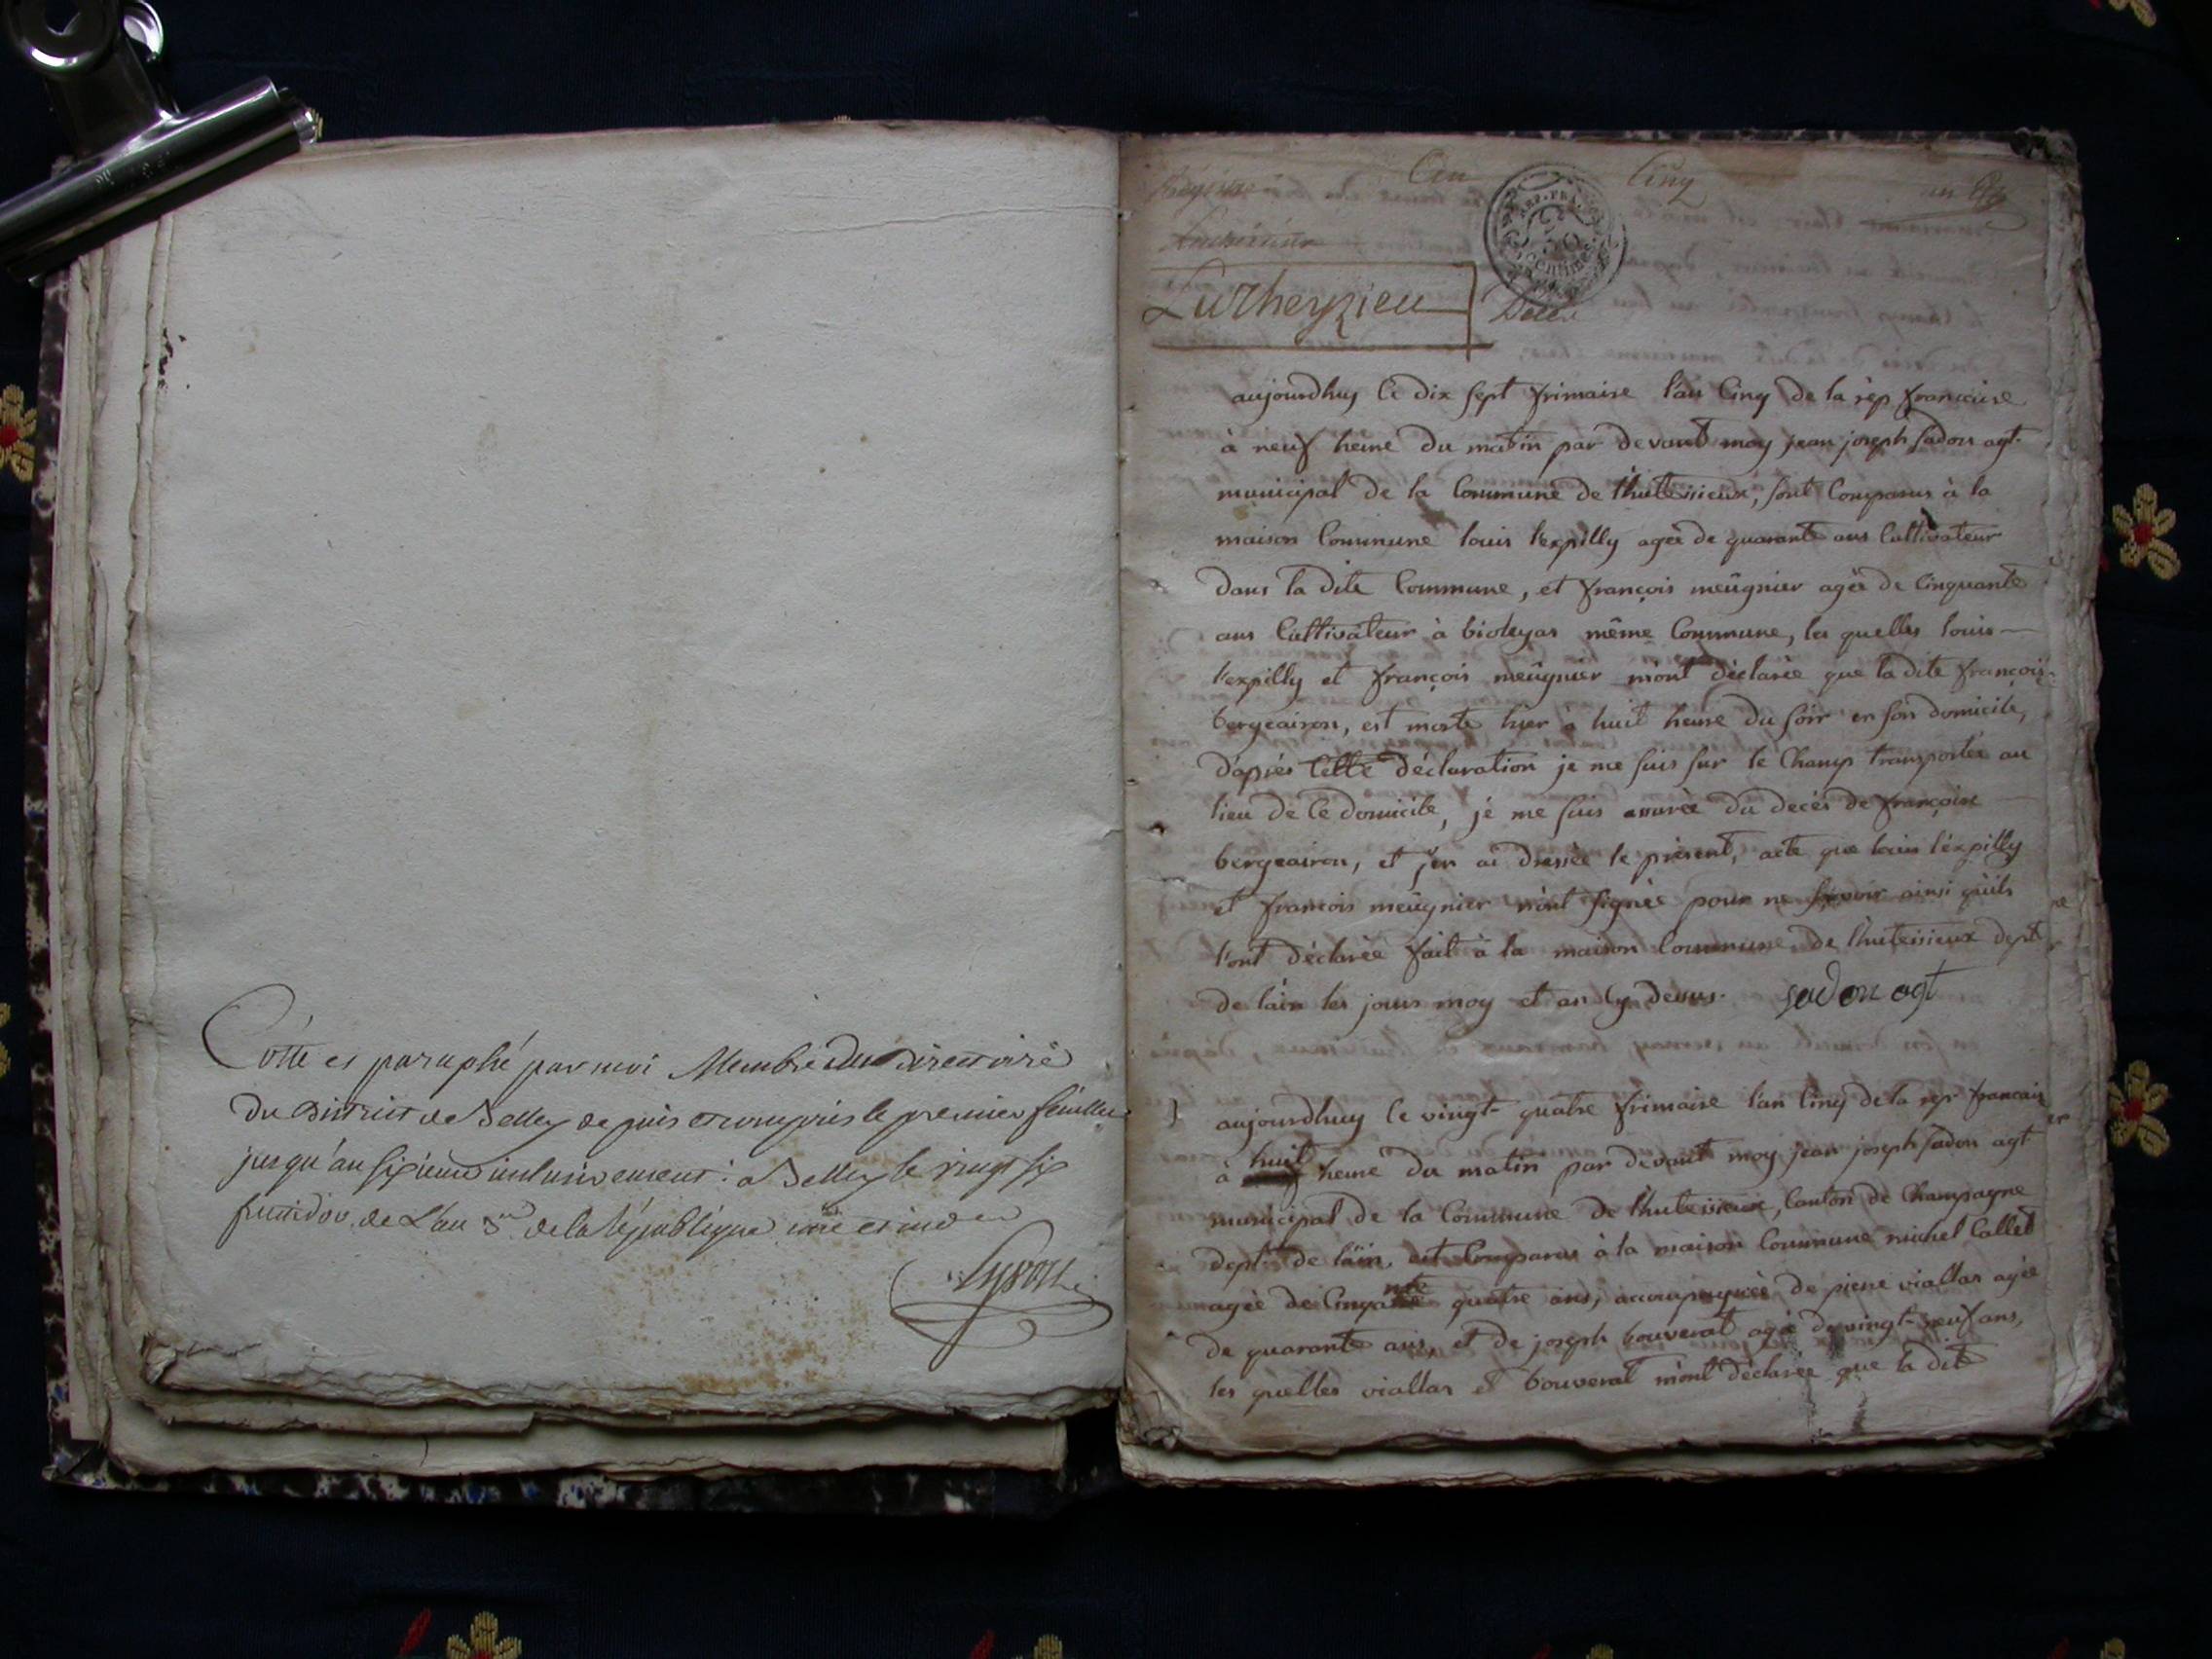 Cotté et paraphé par moi Membre du Directoire
du District de Belley depuis et compris le premier feuillet
jusqu'au sixieme inclusivement : a Belley le vingt six
fructidor de L'an 3me de la République une et ind
an Cinq
REP. FRA.
centimes
Lutheyzieu
Décès
aujourdhuy le dix sept frimaire l'an Cinq de la rép francaise
à neuf heure du matin par devant moy jean joseph sadon agt
municipal de la Commune de lhuteissieux, sont Comparus à la
maison Commune louis l'expilly agée de quarante ans Cultivateur
dans la dite Commune, et françois meûgnier agée de Cinquante
ans Cultivateur à bioleyas même Commune, les quelles louis
l'expilly et françois meûgnier m'ont déclarée que la dite françoise
bergeairon, est morte hier à huit heure du soir en son domicile,
d'aprés Cette déclaration je me suis sur le Champ transportée au
lieu de Ce domicile, je me suis assurée du decés de françoise
bergeairon, et j'en ai dressée le présent, acte que louis l'expilly
et francois meûgnier n'ont signée pour ne savoir ainsi qu'ils
l'ont déclarée fait à la maison Commune de lhuteissieux dept
de l'ain les jours moy et an Cy dessus. sadon agt
aujourdhuy le vingt-quatre frimaire l'an Cinq de la rep francais
à huit heure du matin par devant moy jean joseph sadon agt
municipal de la Commune de lhuteissieux, Canton de Champagne
dept de l'ain, est Comparus à la maison Commune michel Callet
agée de Cinquante quatre ans, accompagnée de pierre viallas agée
de quarante ans, et de joseph bouverat agée de vingt-neuf ans,
les quelles viallas et bouverat m'ont déclarée que la dite